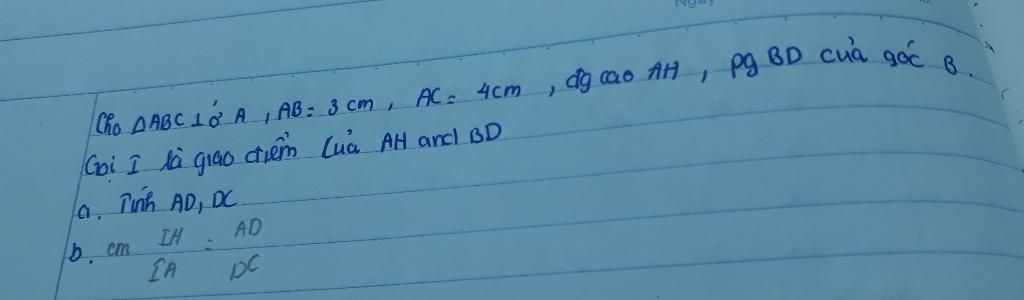 Cho ΔABC ⊥ ở A, AB = 3 cm, AC = 4cm, đg cao AH, pg BD của góc B.
Gọi I là giao điểm của AH and BD
a. Tính AD, DC
b. cm IH/IA = AD/DC